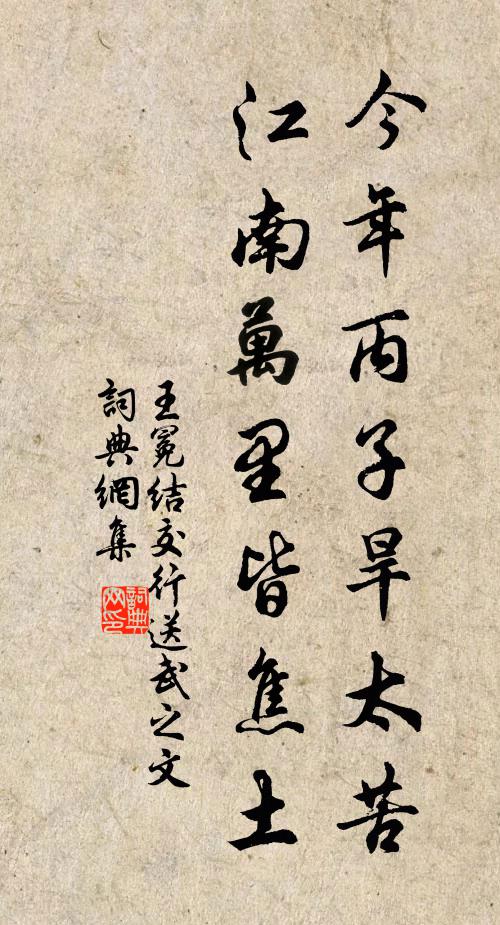 今年丙子旱太苦
江南萬里皆焦土
王冕結交行送武之文
詞典網集
詞典網印